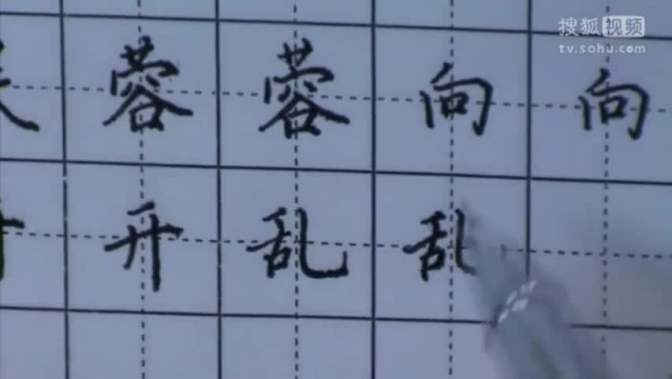 搜狐视频
tv.sohu.com
蓉蓉向向
开乱乱